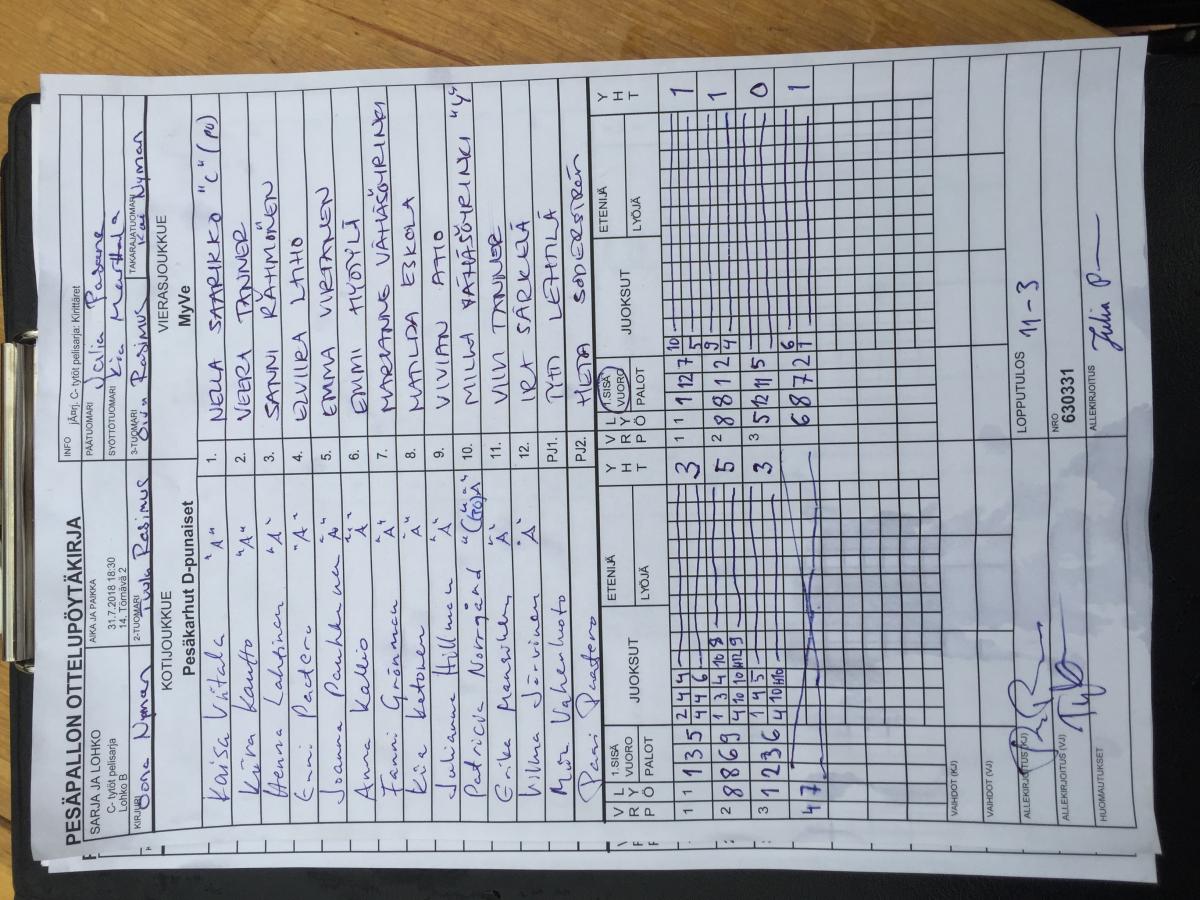 PESÄPALLON OTTELUPÖYTÄKIRJA
SARJA JA LOHKO
C- tytöt pelisarja
Lohko B
AIKA JA PAIKKA
31.7.2018 18:30
14. Törnävä 2
INFO jÄnj. C- tytöt pelisarja: Kirittäret
PÄÄTUOMARI Julia Pasane
SYÖTTÖTUOMARI Kia Marttala
KIRJURI Oona Nyman
2-TUOMARI Tuula Rasimus
3-TUOMARI Oiva Rasimus
TAKARAJATUOMARI Kai Nyman
KOTIJOUKKUE
Pesäkarhut D-punaiset
VIERASJOUKKUE
MyVe
Kaisa Viitala "A"
1. NELLA SAARIKKO "C" (PO)
Kiira Kautto "A"
2. VEERA TANNER
Henna Lahtinen "A"
3. SANNI RÄHMÖNEN
Emmi Paatero "A"
4. ELVIIRA LAIHO
Joanna "A"
5. EMMA VIRTANEN
Anna Kallio "A"
6. EMMI HYÖTYLÄ
Fanni Grönman "A"
7. MARIANNE VÄHÄSÖYRINKI
Kia Ketonen "A"
8. MATILDA ESKOLA
Julianna Hillman "A"
9. VIVIAN AHO
Patricia Norrgånd
10. MILLA VÄHÄSÖYRINKI "U"
Erika "A"
11. VIIVI TANNER
Vilma Järvinen "A"
12. IRA SÄRKELÄ
Mira Vahenhuhto
PJ1. PYTI LEHTILÄ
Pasi Paatero
PJ2. HETA SÖDERSTRÖM
V R P L Y Ö 1.SISÄ VUORO PALOT JUOKSUT ETENIJÄ LYÖJÄ Y H T
V R P L Y Ö 1.SISÄ VUORO PALOT JUOKSUT ETENIJÄ LYÖJÄ Y H T
1 1 1 3 5 2 4 4 3
4 4 6
1 1 1 12 7 10 1
5
2 8 8 6 9 1 3 4 10 8 5
4 10 10 H12 9
2 8 8 1 2 9 1
4
3 1 2 3 6 1 4 5 3
4 10 H10
3 5 12 11 5 0
4 7
6 8 7 2 6 1
1
VAIHDOT (KJ)
VAIHDOT (VJ)
ALLEKIRJOITUS (KJ)
LOPPUTULOS 11-3
ALLEKIRJOITUS (VJ)
NRO
630331
HUOMAUTUKSET
ALLEKIRJOITUS Julia P